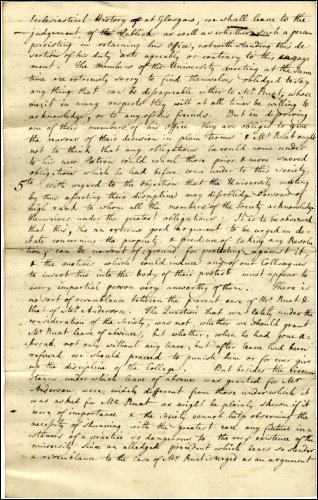 Ecclesiastical History at Glasgow, we shall leave to the
judgement of the Publick as well as whether such a person
persisting in retaining his Office, notwithstanding this de-
sertion of his duty act agreably or contrary to his engage
ment. The Members of the University meeting at the same
time are extremely sorry to find themselves obliged to say
any thing that can be disparageable either to Mr Ruat, whose
merit in many respects they will at all times be willing to
acknowledge, or to any of his friends. But in depriving
one of their members of his office they are obliged to give
the reasons of their decision in plain terms & Mr Ruat ought
not to think that any obligations he could come under
to his new Patron could cancel those prior & more sacred
obligations which he had before come under to this Society.
5to with regard to the objection that the University meeting
by thus asserting their discipline may disoblige Persons of
high rank to whom all the members of the Society acknowledge
themselves under the greatest obligations. It is to be observed
that this, tho an extreme good argument to be urged in de-
bate concerning the propriety & prudence of taking any Resolu
tion, can be no sort of ground for protesting against it,
& the motives which could induce any of our Colleagues
to insert this into the body of their protest must appear to
every impartial person very unworthy of them. There is
no sort of resemblance between the present case of Mr Ruat &
that of Mr Anderson. The Question that was lately under the
consideration of the Society, was not, whether we should grant
Mr Ruat leave of absence, but whether, when he had gone a-
broad not only without any leave, but after leave had been
refused we should proceed to punish him or for ever give
up the discipline of the College. But besides the Circum
stances under which leave of absence was granted for Mr
Anderson were widely different from those under which it
was asked for Mr Ruat as could be plainly shewn if it
were of importance. The Society cannot help observing the
necessity of shunning with the greatest care any future in-
stances of a practice so dangerous to the very existence of the
university since an alledged precedent which bears so slender
a resemblance to the case of Mr Ruat is urged as an argument